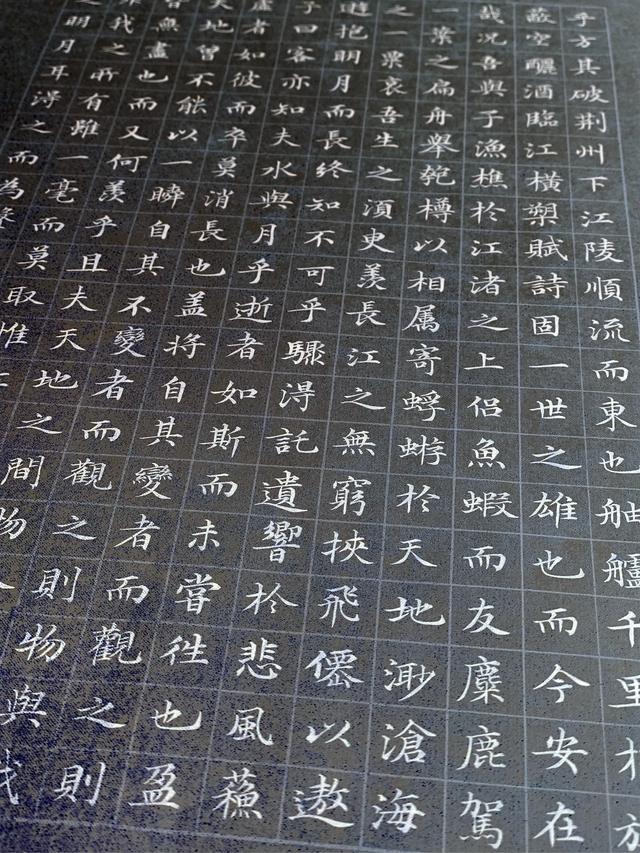 乎方其破荆州下江陵順流而東也舳艫千里
蔽空釃酒臨江橫槊賦詩固一世之雄也而今安在
哉况吾與于漁樵於江渚之上侣魚蝦而友麋鹿駕
一葉之扁舟舉匏樽以相属寄蜉蝣於天地渺滄海
之一粟哀吾生之須臾羨長江之無窮挾飛僊以遨
遊抱明月而長終知不可乎驟得託遺響於悲風蘓
子曰客亦知夫水與月乎逝者如斯而未甞往也盈
虛者如彼而卒莫消長也盖將自其變者而觀之則
天地曾不能以一瞬自其不變者而觀之則物與我
皆無盡也而又何羨乎且夫天地之間物
我之所有雖一毫而莫取惟
之明月耳得之而為